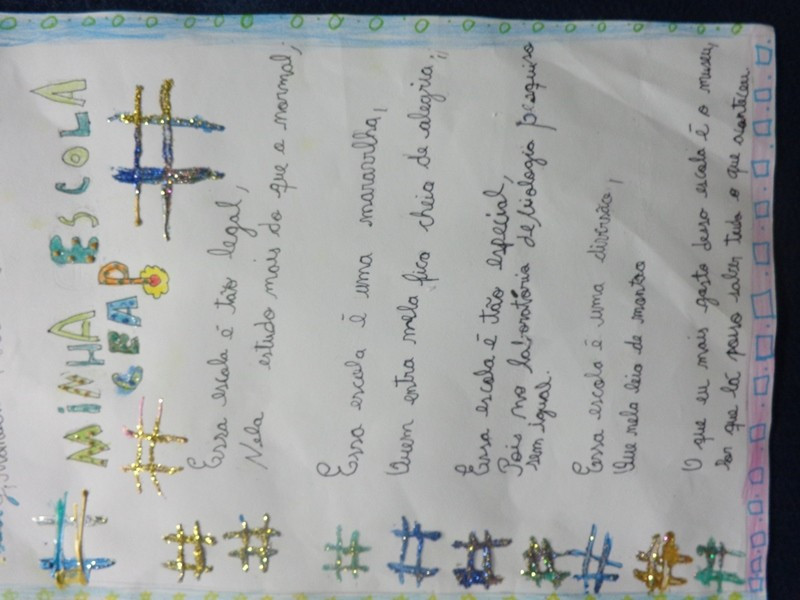 MINHA ESCOLA
CEAP
Essa escola é tão legal,
Nela estudo mais do que o normal;
Essa escola é uma maravilha,
Quem entra nela fica cheio de alegria;
Essa escola é tão especial,
Pois no laboratório de biologia pesquiso
sem igual.
Essa escola é uma diversão,
Que nela leio de montão
O que eu mais gosto desso escola é o museu,
por que lá posso saber tudo o que aconteceu